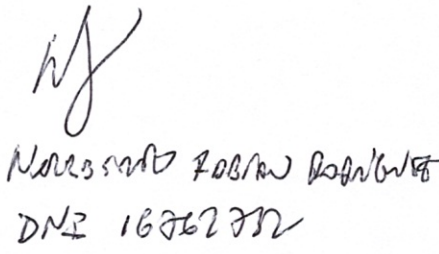 Norberto Fabian Rodriguez
DNI 16762732